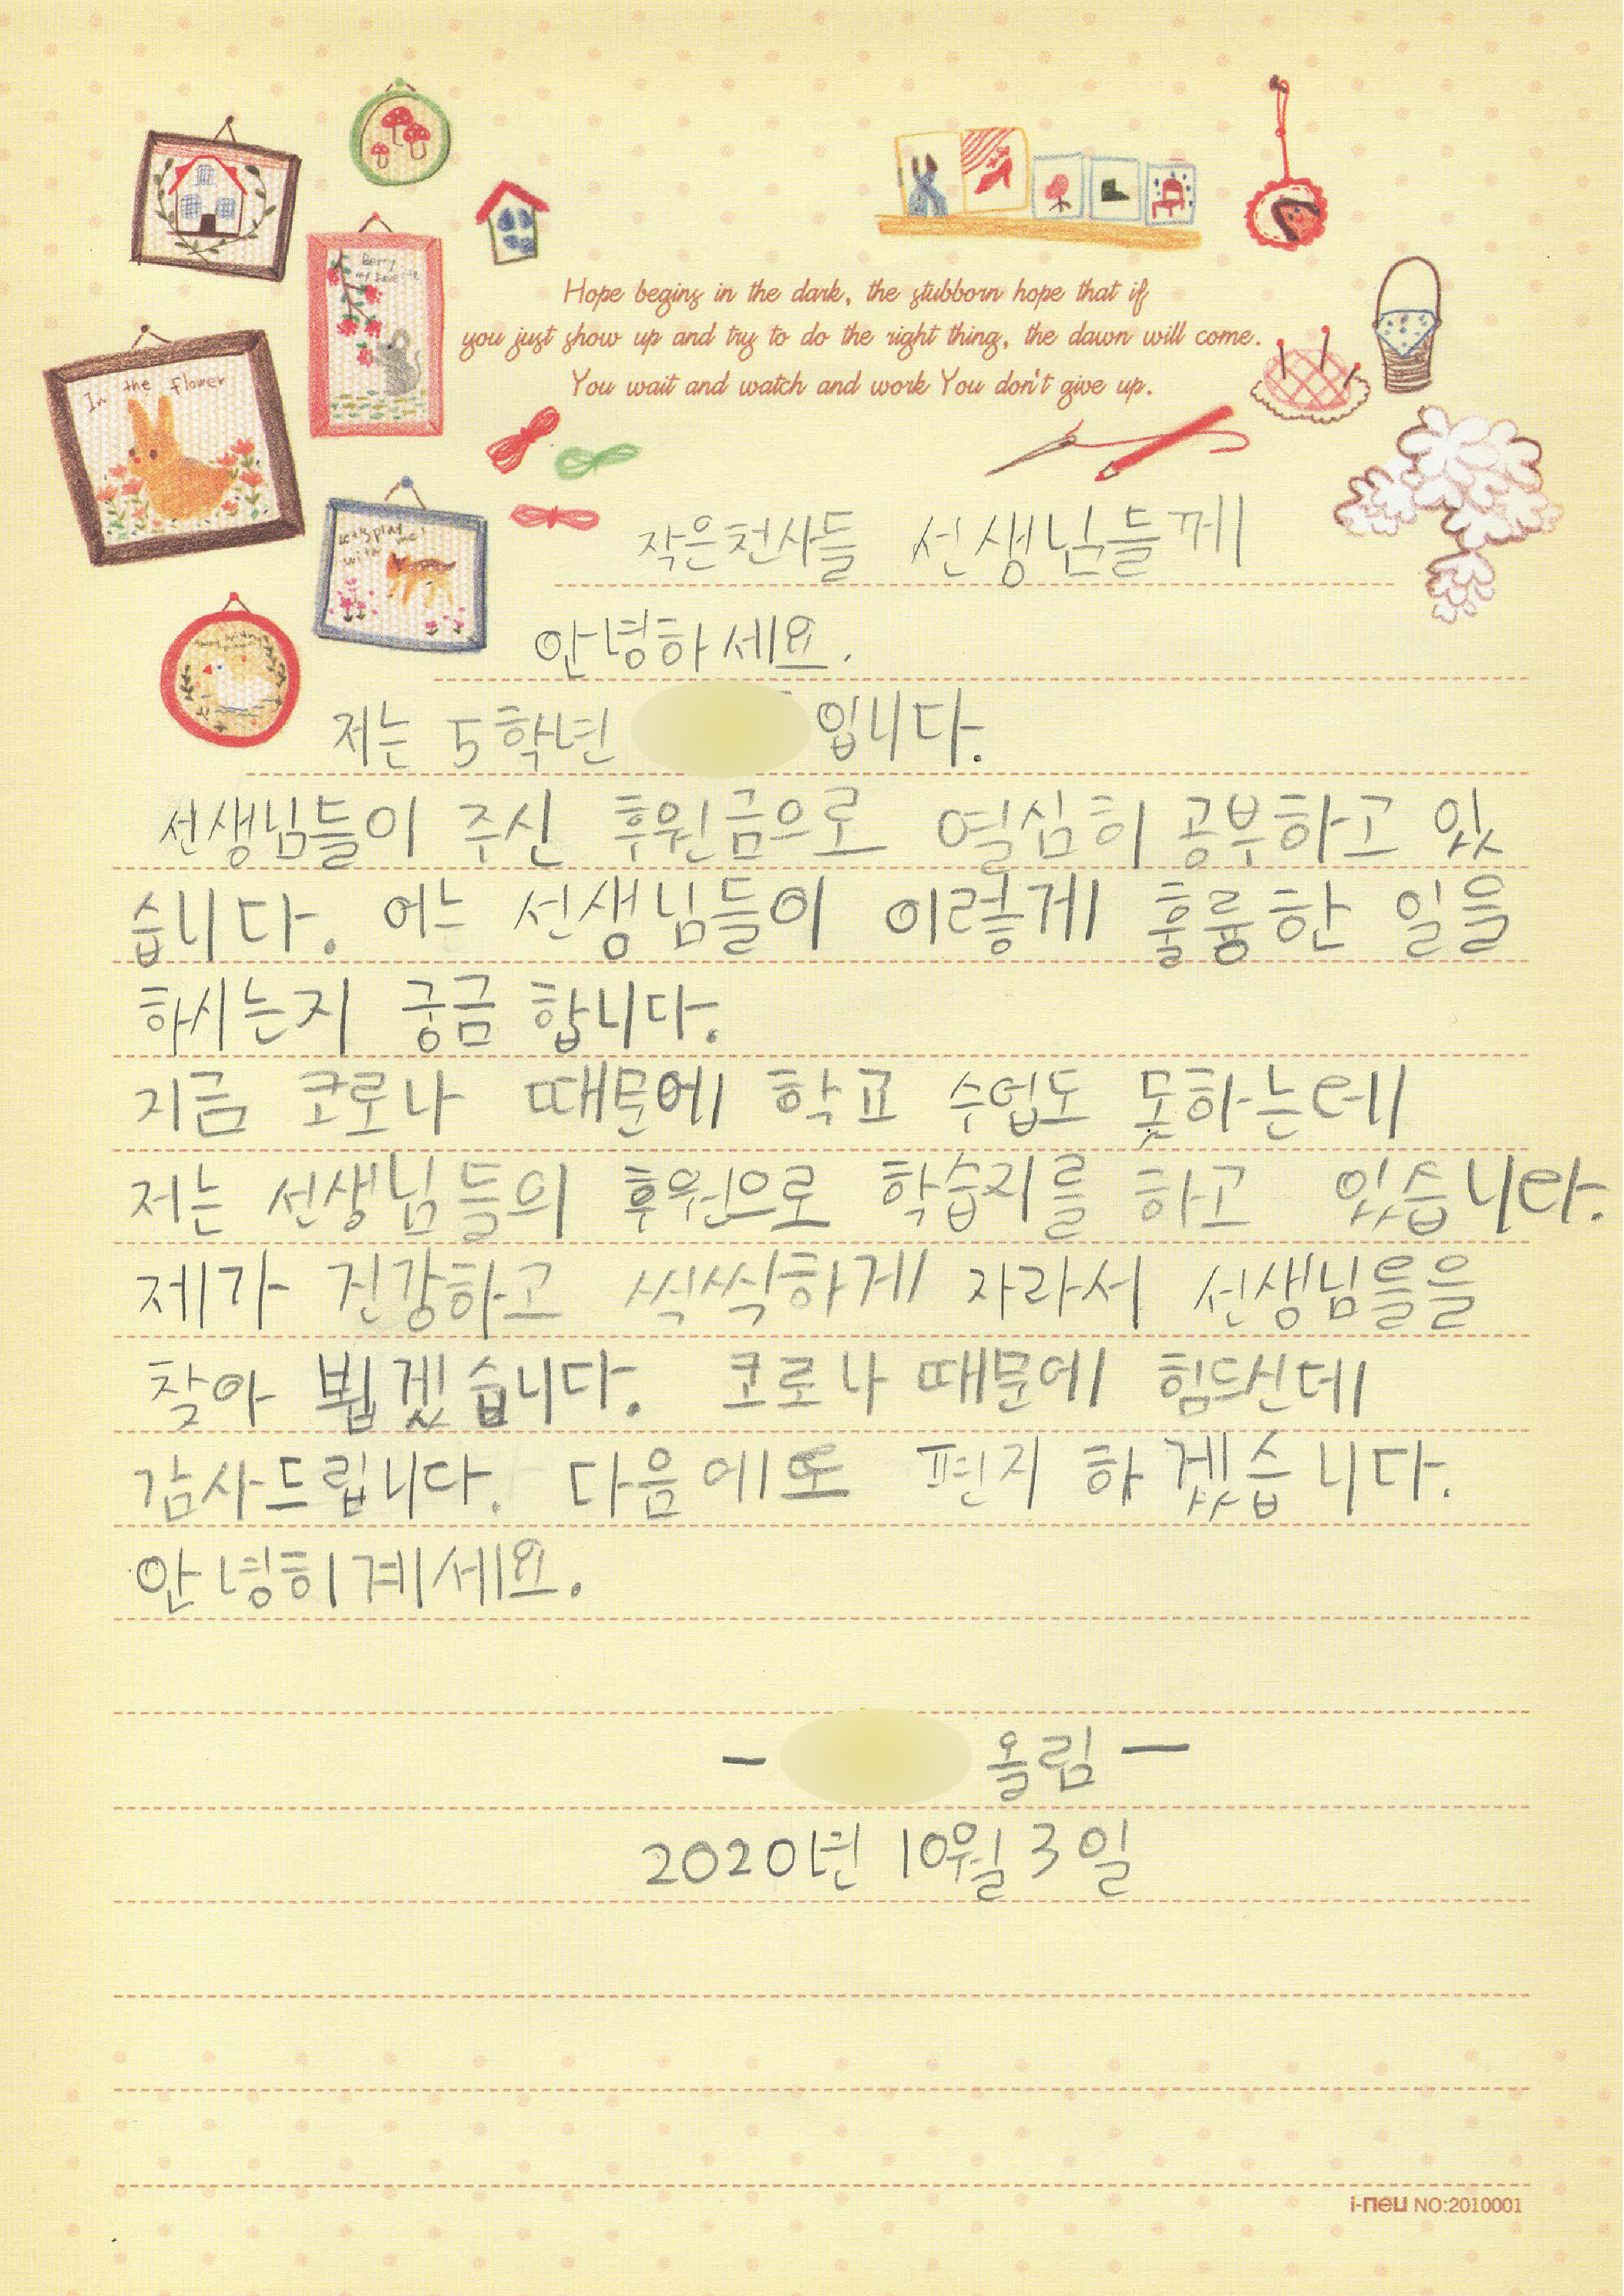 Berry
my favorite
In the flower
Let's play
with me!
Hope begins in the dark, the stubborn hope that if
you just show up and try to do the right thing, the dawn will come.
You wait and watch and work You don't give up.
작은천사들 선생님들께
안녕하세요.
저는 5학년 입니다.
선생님들이 주신 후원금으로 열심히 공부하고 있
습니다. 어느 선생님들이 이렇게 훌륭한 일을
하시는지 궁금 합니다.
지금 코로나 때문에 학교 수업도 못하는데
저는 선생님들의 후원으로 학습지를 하고 있습니다.
제가 건강하고 씩씩하게 자라서 선생님들을
찾아 뵙겠습니다. 코로나 때문에 힘드신데
감사드립니다. 다음에또 편지 하겠습니다.
안녕히계세요.
- 올림 -
2020년 10월 3일
i-neu NO:2010001